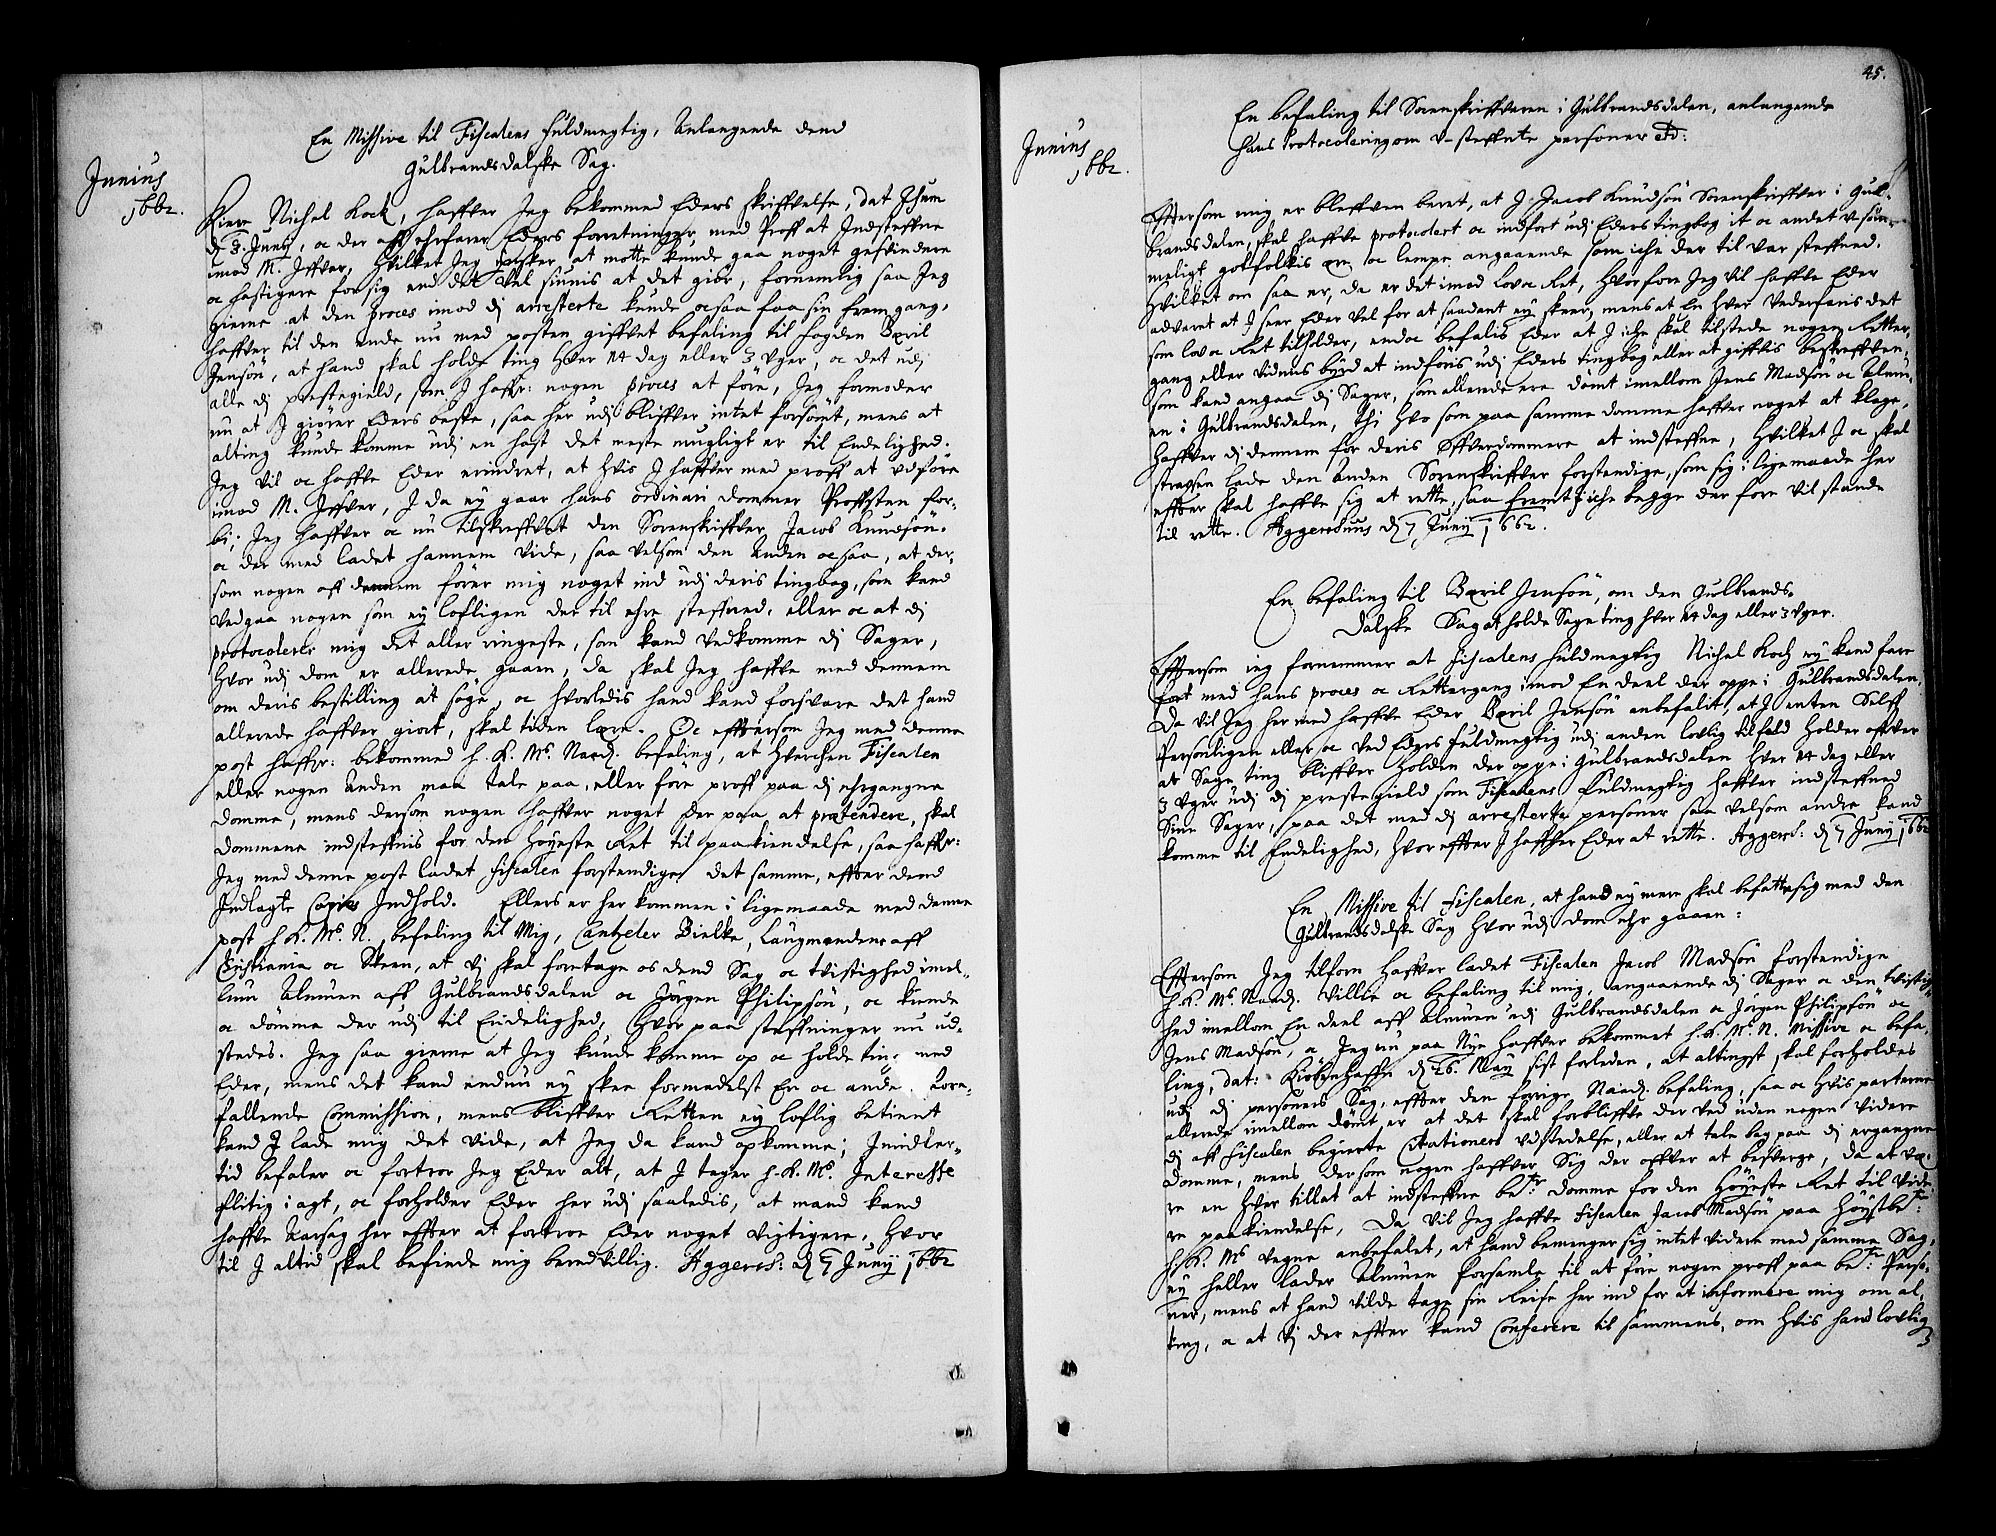 En Missive til Fiscalens fuldmegtig, Anlangende dend
Gulbrandsdalske Sag.
Junius
1662.
Kiere Nichel Kock, haffver Jeg bekommed Eders skriffvelse, dat
d 3. Juny, oc der aff ehrfarer Eders forretninger, med Proff at Indsteffne
imod M. Iffver, hvilket Jeg ønsker at motte kunde gaa noget gesvindere
oc hastigere for sig end det vel siunis at det giør, fornemlig saa Jeg
gierne at den proces imod dj arresterte kunde ocsaa faa sin fremgang,
haffver til den Ende nu med posten giffvet befaling til fogden Bæril
Jensøn, at hand skal holde ting hver 14 dag eller 3 Uger, oc det udj
alle dj prestegield, som J haffr: nogen proces at føre, Jeg formoder
nu at J giører Eders beste, saa her udj bliffver intet forsømt, mens at
alting kunde komme udj en hast det meste mugligt er til Endelighed.
Jeg vil oc haffve Eder erindret, at hvis J haffver med proff at udføre
imod M. Iffver, J da ey gaar hans ordinari dommer Proffsten for-
bi; Jeg haffver oc nu tilskreffvet den Sorenskriffver Jacob Knudsøn.
oc der med ladet hannem vide, saa velsom den Anden ocsaa, at der-
som nogen aff dennem fører mig noget ind udj deris tingbog, som kand
vedgaa nogen som ey lofligen der til ehre steffned, eller oc at dj
protocolerer mig det aller ringeste, som kand vedkomme dj Sager,
hvor udj dom er allerede gaaen, da skal Jeg haffve med dennem
om deris bestilling at søge, oc hvorledis hand kand forsvare det hand
allerede haffver giort, skal tiden lære. Oc effttersom Jeg med denne
post haffr: bekommed h. K. Ms. Naad. befaling, at hverchen Fiscalen
eller nogen Anden maa tale paa, eller føre proff paa dj ehrgangne
domme, mens dersom nogen haffver noget der paa at prætendere, skal
dommene indsteffnis for den høyeste Ret til paakiendelse, saa haffr:
Jeg med denne post ladet fiscalen forstendiget det samme, effter dend
Indlagte Copies Indhold. Ellers er her kommen i ligemaade med denne
post h. K. Ms. N. befaling til Mig, Cantzeler Bielke, Laugmendene aff
Christiania oc Skeen, at vj skal foretage os dend Sag oc tvistighed imel-
lum Almuen aff Gulbrandsdalen oc Jørgen Philipsøn, oc kiende
oc dømme der udj til Endelighed, hvor paa steffninger nu ud-
stedes. Jeg saa gierne at Jeg kunde komme op oc holde ting med
Eder, mens det kand endnu ey skee formedelst En oc anden fore-
fallende Commission, mens bliffver Retten ey loflig betient
kand J lade mig det vide, at Jeg da kand opkomme; Jmidler-
tid befaler oc fortror Jeg Eder alt, at J tager h. K. Ms. Interesse
flitig i agt, oc forholder Eder her udj saaledis, at mand kand
haffve Aarsag her effter at fortroe Eder noget vigtigere, hvor
til J altid skal befinde mig beredvillig. Aggersh: d 7 Juny 1662
45.
En befaling til Sorenskriffveren i Gulbrandsdalen, anlangende
hans Protocolering om U-steffnte personer etc:
Junius
1662.
Effttersom mig er bleffven beret, at J Jacob Knudsøn Sorenskriffver i Gul-
brandsdalen, skal haffve protocolert oc indført udj Eders tingbog it oc andet u-søm-
meligt gotfolkis ære oc lempe angaaende som iche der til var steffned.
Hvilket om saa er, da er det imod lov oc Ret, hvorfore Jeg vil haffve Eder
advaret at J seer Eder vel for at saadant ey skeer, mens at En hver vederfaris det
som lov oc Ret tilholder, endoc befalis Eder at J iche skal tilstede nogen Retter-
gang eller vidnis byrd at indføris udj Eders tingbog eller at giffvis beskreffven,
som kand angaa dj Sager, som allerede ere dømt imellom Jens Madsøn oc Almu-
en i Gulbrandsdalen, thj hvo som paa samme domme haffver noget at klage,
haffver dj dennem for deris Offverdommere at indsteffne, hvilket J oc skal
stragsen lade den Anden Sorenskriffver forstendige, som sig i ligemaade her
effter skal haffve sig at rette, saa fremt J iche begge der fore vil stande
til rette. Aggershuus d 7 Juny 1662.
En befaling til Bæril Jensøn, om den Gulbrands-
dalske Sag at holde Sageting hver 14 dag eller 3 Uger.
Effttersom ieg fornemmer at fiscalens fuldmegtig Nichel Koch ey kand fare
fort med hans proces oc Rettergang imod En deel der oppe i Gulbrandsdalen,
Da vil Jeg her med haffve Eder Bæril Jensøn anbefalit, at J enten Selff
Personligen eller oc ved Eders fuldmegtig udj anden lovlig tilfald holder offver
at Sage ting bliffver holden der oppe i Gulbrandsdalen hver 14 dag eller
3 Uger udj dj prestegield som Fiscalens fuldmegtig haffver indsteffned
Sine Sager, paa det med dj arresterte personer saa velsom andre kand
komme til Endelighed, hvor effter J haffver Eder at rette. Aggersh: d 7 Juny 1662
En Missive til fiscalen, at hand ey mere skal befatte sig med den
Gulbrandsdalske Sag hvor udj dom ehr gaaen:
Effttersom Jeg tilforn haffver ladet Fiscalen Jacob Madsøn forstendige
h. K. Ms. Naad. villie oc befaling til mig, angaaende dj Sager oc den tvistig-
hed imellom En deel aff Almuen udj Gulbrandsdalen oc Jørgen Philipsøn oc
Jens Madsøn, oc Jeg nu paa Nye haffver bekommet h. K. Ms. N. Missive oc befa-
ling, dat: Kiøbenhaffn d 26. May sist forleden, at altingst skal forholdes
udj dj personers Sag, effter den forrige Naad. befaling, saa oc hvis parterne
allerede imellom dømt er at det skal forbliffve der ved uden nogen videre
dj aff fiscalen begierte Citationers udstedelse, eller at tale bag paa dj ergangne
domme, mens dersom nogen haffver Sig der offver at besverge, da at væ-
re en hver tillat at indsteffne be:te domme for den Høyeste Ret til vide-
re paakiendelse, Da vil Jeg haffve fiscalen Jacob Madsøn paa Høystbe:te
h. K. Ms vegne anbefalet, at hand bemenger sig intet videre med samme Sag,
ey heller lader Almuen forsamle til at føre nogen proff paa be:te Perso-
ner, mens at hand vilde tage sin Reise her ind for at informere mig om al-
ting, oc at vj der effter kand Conferere til sammens, om hvis hand lovlig